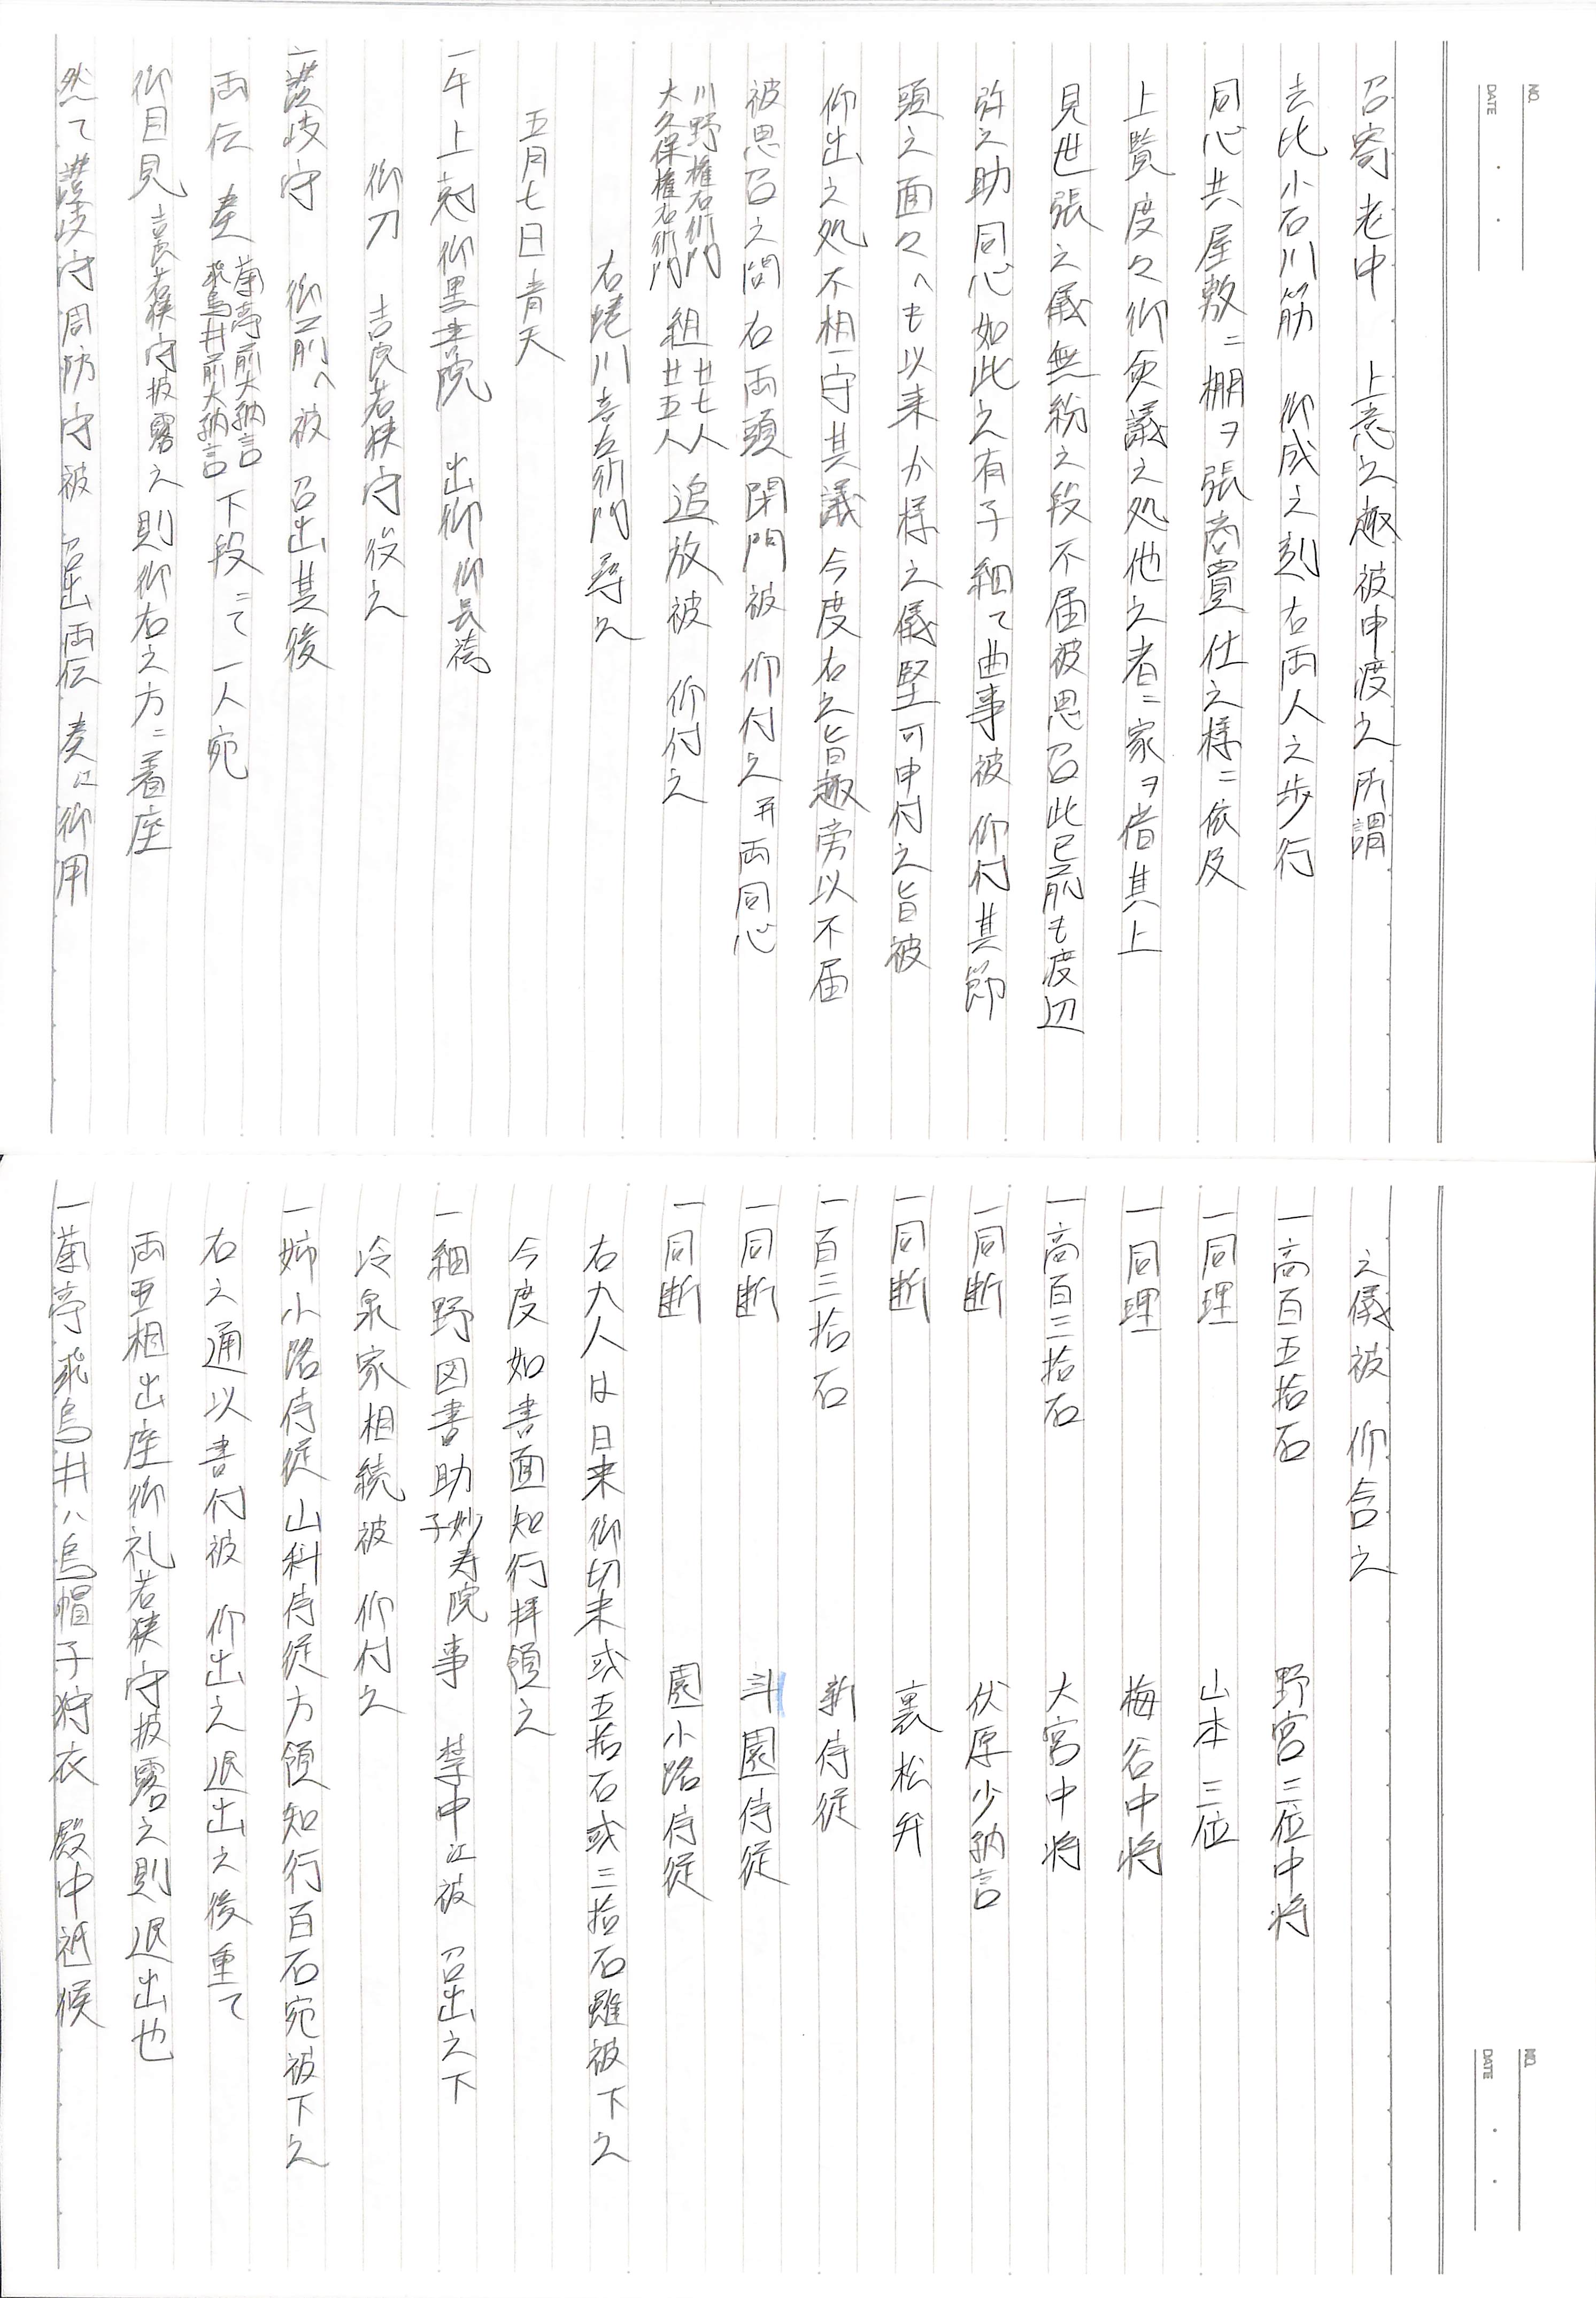 NO.
DATE
召寄老中 上意之趣被申渡之所謂
去比小石川筋 御成之刻右両人之歩行
同心共屋敷ニ棚ヲ張商買仕之様ニ依及
上覧度々御僉議之処他之者ニ家ヲ借其上
見世張之儀無紛之段不届被思召此已前も度辺
弥之助同心如此之有子細て曲事被 仰付其節
頭之面々へも以来か様之儀堅可申付之旨被
仰出之処不相守其議今度右之旨趣旁以不届
被思召之間右両頭閉門被 仰付之并両同心
川野権右衛門 大久保権右衛門 組 廿七人 廿五人 追放被 仰付之
右蜷川喜左衛門尋之
五月七日青天
一午上刻御黒書院 出御 御長袴
御刀 吉良若狭守役之
一讃岐守 御前へ被 召出其後
両伝 奏 菊亭前大納言 飛鳥井前大納言 下段ニて一人宛
御目見 吉良若狭守披露之則御右之方ニ着座
然て讃岐守周防守被 召出両伝 奏江御用
NO.
DATE
之儀被 仰含之
一高百五拾石 野宮三位中将
一同理 山本三位
一同理 梅谷中将
一高百三拾石 大宮中将
一同断 伏原少納言
一同断 裏松弁
一百三拾石 新侍従
一同断 園侍従
一同断 園小路侍従
右九人は日来御切米或五拾石或三拾石雖被下之
今度如書面知行拝領之
一細野図書助 妙寿院子 事 禁中江被 召出之下
冷泉家相続被 仰付之
一姉小路侍従山科侍従方領知行百石宛被下之
右之通以書付被 仰出之退出之後重て
両亜相出座御礼若狭守披露之則退出也
一菊亭飛鳥井ハ烏帽子狩衣 殿中祗候